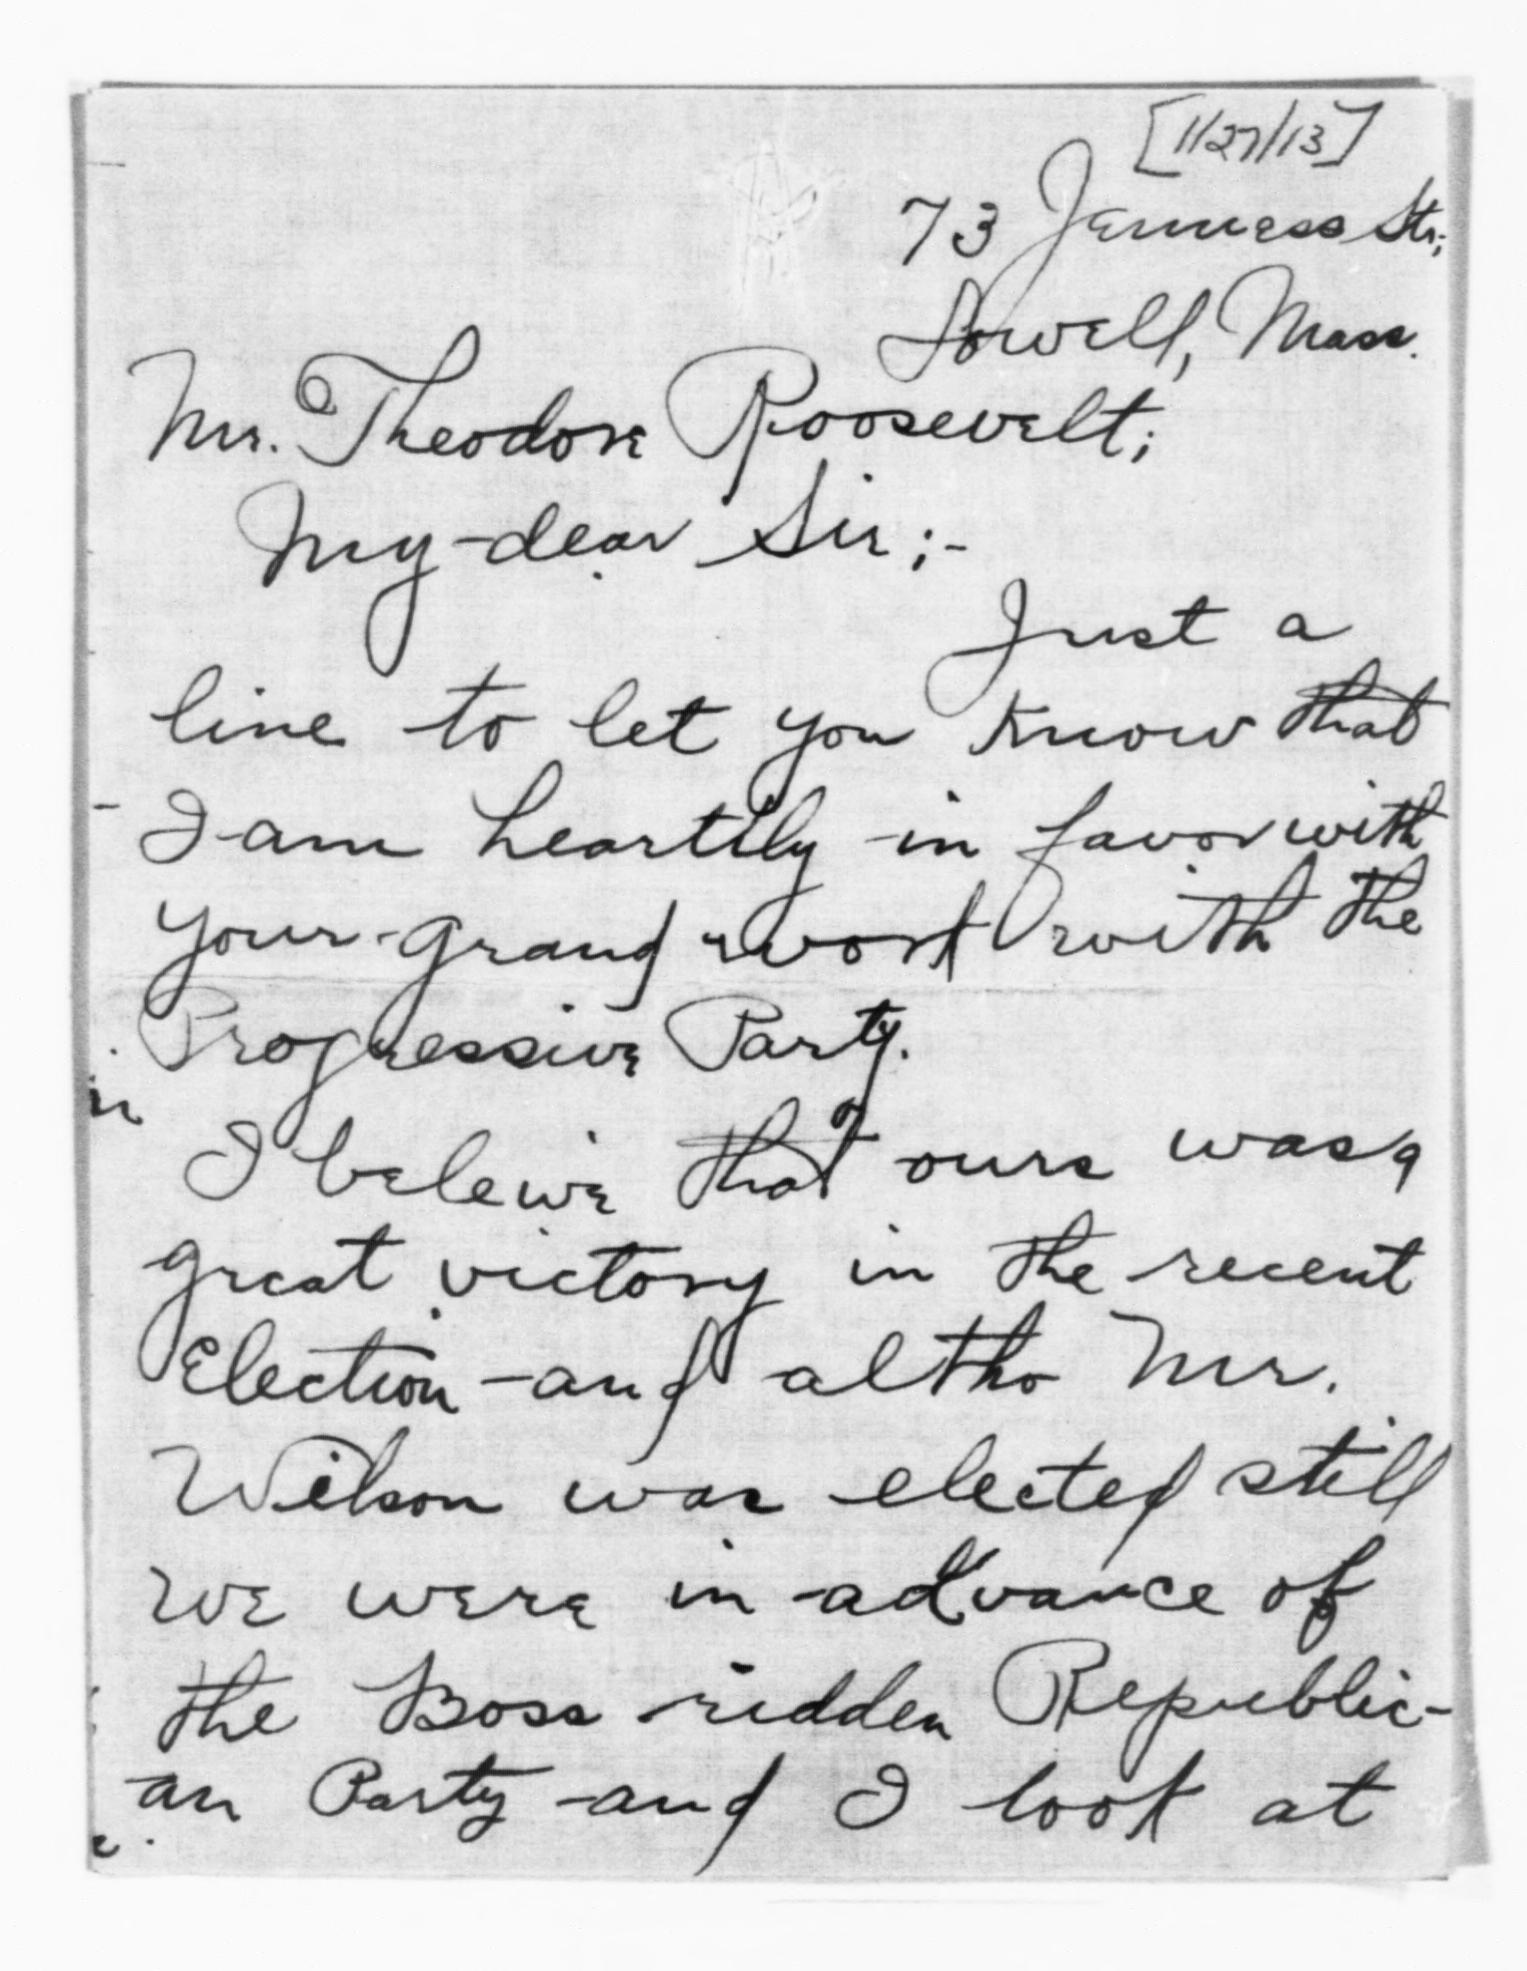 [1/27/13]
73 Jenness Str;
Lowell, Mass.
Mr. Theodore Roosevelt;
My dear Sir;-
Just a
line to let you know that
I am heartily in favor with
your grand work with the
Progressive Party.
I beleive that ours was a
great victory in the recent
Election and altho Mr.
Wilson was elected still
we were in advance of
the Boss ridden Republic-
an Party and I look at